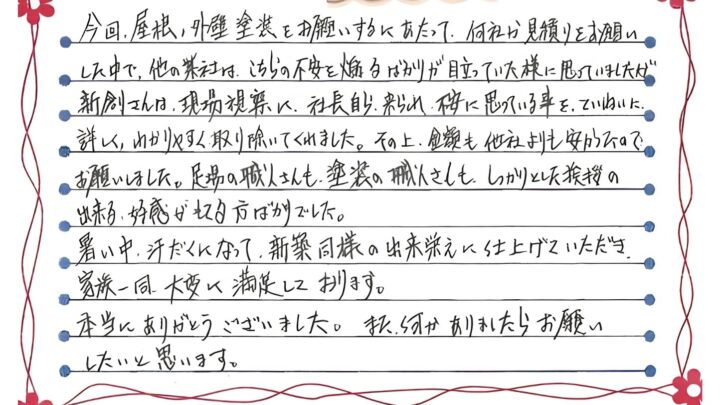 今回、屋根、外壁塗装をお願いするにあたって、何社か見積りをお願い
した中で、他の業社は、こちらの不安を煽るばかりが目立っていた様に思っていましたが
新創さんは、現場視察に、社長自ら来られ、不安に思っている事を、ていねいに、
詳しく、わかりやすく取り除いてくれました。その上、金額も他社よりも安かったので
お願いしました。足場の職人さんも、塗装の職人さんも、しっかりとした挨拶の
出来る、好感がもてる方ばかりでした。
暑い中、汗だくになって、新築同様の出来栄えに仕上げていただき、
家族一同、大変に満足しております。
本当にありがとうございました。また、何かありましたらお願い
したいと思います。